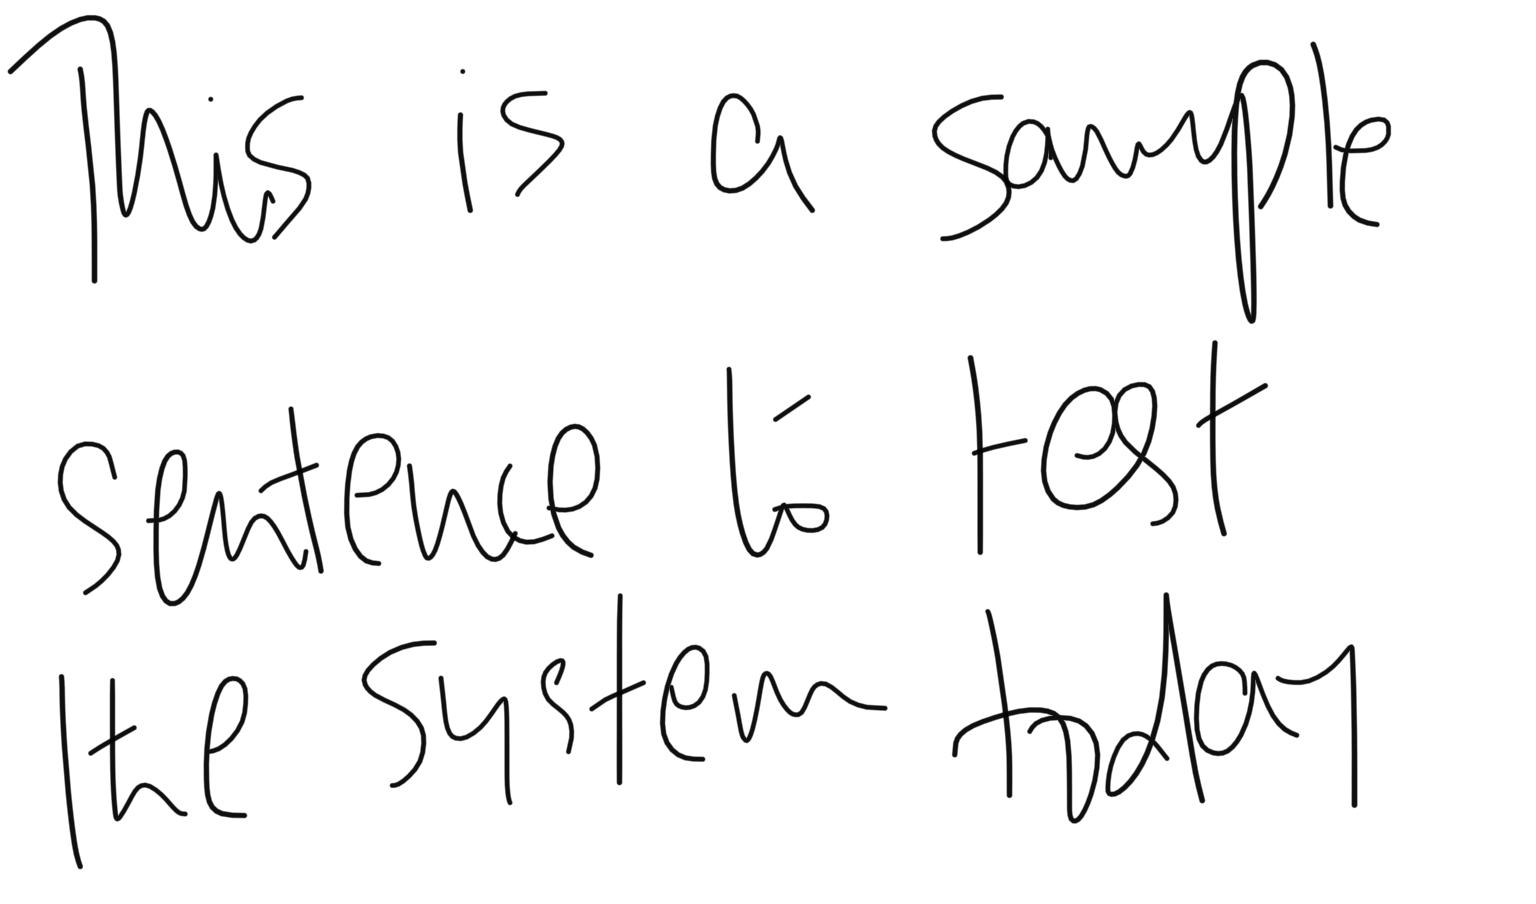 This is a sample
sentence to test
the system today